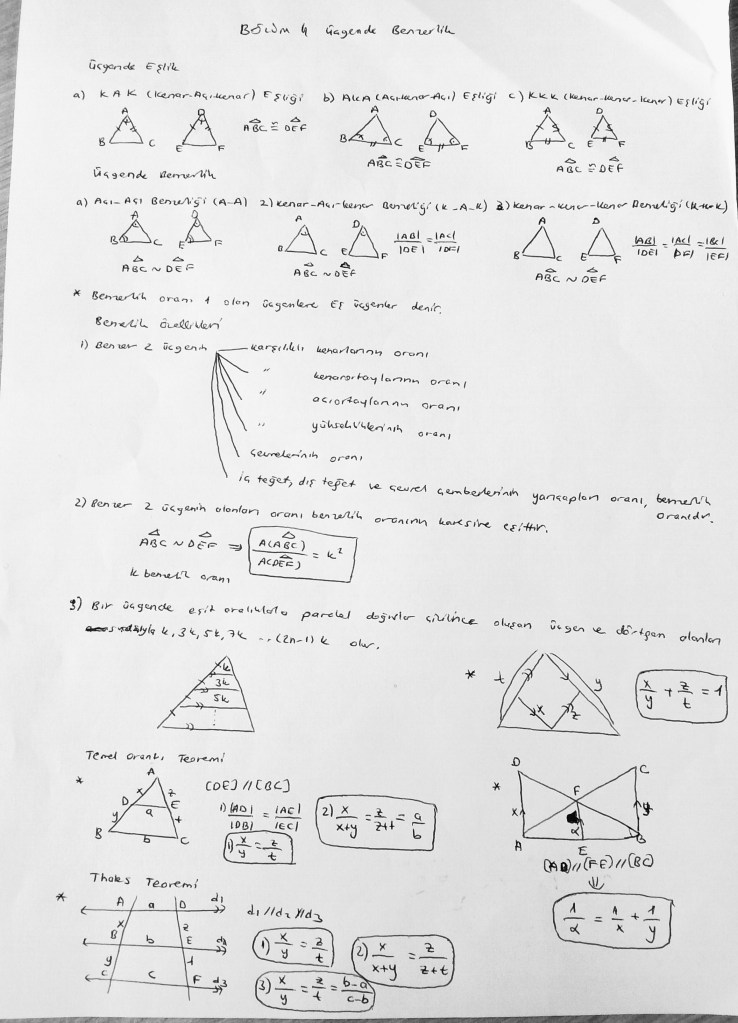 BÖLÜM 4 Üçgende Benzerlik
Üçgende Eşlik
a) KAK (Kenar-Açı-Kenar) Eşliği b) AKA (Açı-Kenar-Açı) Eşliği c) KKK (Kenar-Kenar-Kenar) Eşliği
A D A D A D
B C E F ABC ≅ DEF B C E F B C E F
ABC ≅ DEF ABC ≅ DEF
Üçgende Benzerlik
a) Açı-Açı Benzerliği (A-A) 2) Kenar-Açı-Kenar Benzerliği (K-A-K) 3) Kenar-Kenar-Kenar Benzerliği (K-K-K)
A D A D A D
B C E F B C E F |AB|/|DE| = |AC|/|DF| B C E F |AB|/|DE| = |AC|/|DF| = |BC|/|EF|
ABC ~ DEF ABC ~ DEF ABC ~ DEF
* Benzerlik oranı 1 olan üçgenlere Eş üçgenler denir.
Benzerlik özellikleri
1) Benzer 2 üçgenin karşılıklı kenarlarının oranı
" kenarortaylarının oranı
" açıortaylarının oranı
" yüksekliklerinin oranı
çevrelerinin oranı
iç teğet, dış teğet ve çevrel çemberlerinin yarıçapları oranı, benzerlik
oranıdır.
2) Benzer 2 üçgenin alanları oranı benzerlik oranının karesine eşittir.
ABC ~ DEF ⇒ A(ABC)/A(DEF) = k²
k benzerlik oranı
3) Bir üçgende eşit aralıklarla paralel doğrular çizilince oluşan üçgen ve dörtgen alanları
sırasıyla k, 3k, 5k, 7k ... (2n-1) k olur.
k
3k
5k
* t y x z x/y + z/t = 1
Temel Orantı Teoremi
* A x z D E a y t B b C
[DE] // [BC]
1) |AD|/|DB| = |AE|/|EC|
1) x/y = z/t
2) x/(x+y) = z/(z+t) = a/b
* D C F x α y A E B
[AD] // [FE] // [BC]
⇓
1/α = 1/x + 1/y
Thales Teoremi
* A a D d1
x z
B b E d2
y t
C c F d3
d1 // d2 // d3
1) x/y = z/t 2) x/(x+y) = z/(z+t)
3) x/y = z/t = (b-a)/(c-b)